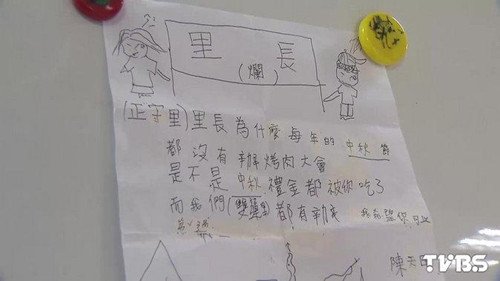 里長
(爛)
(正守里)里長為什麼每年的中秋節
都沒有辦烤肉大會
是不是中秋禮金都被你吃了
而我們(雙葉里)都有
TVBS